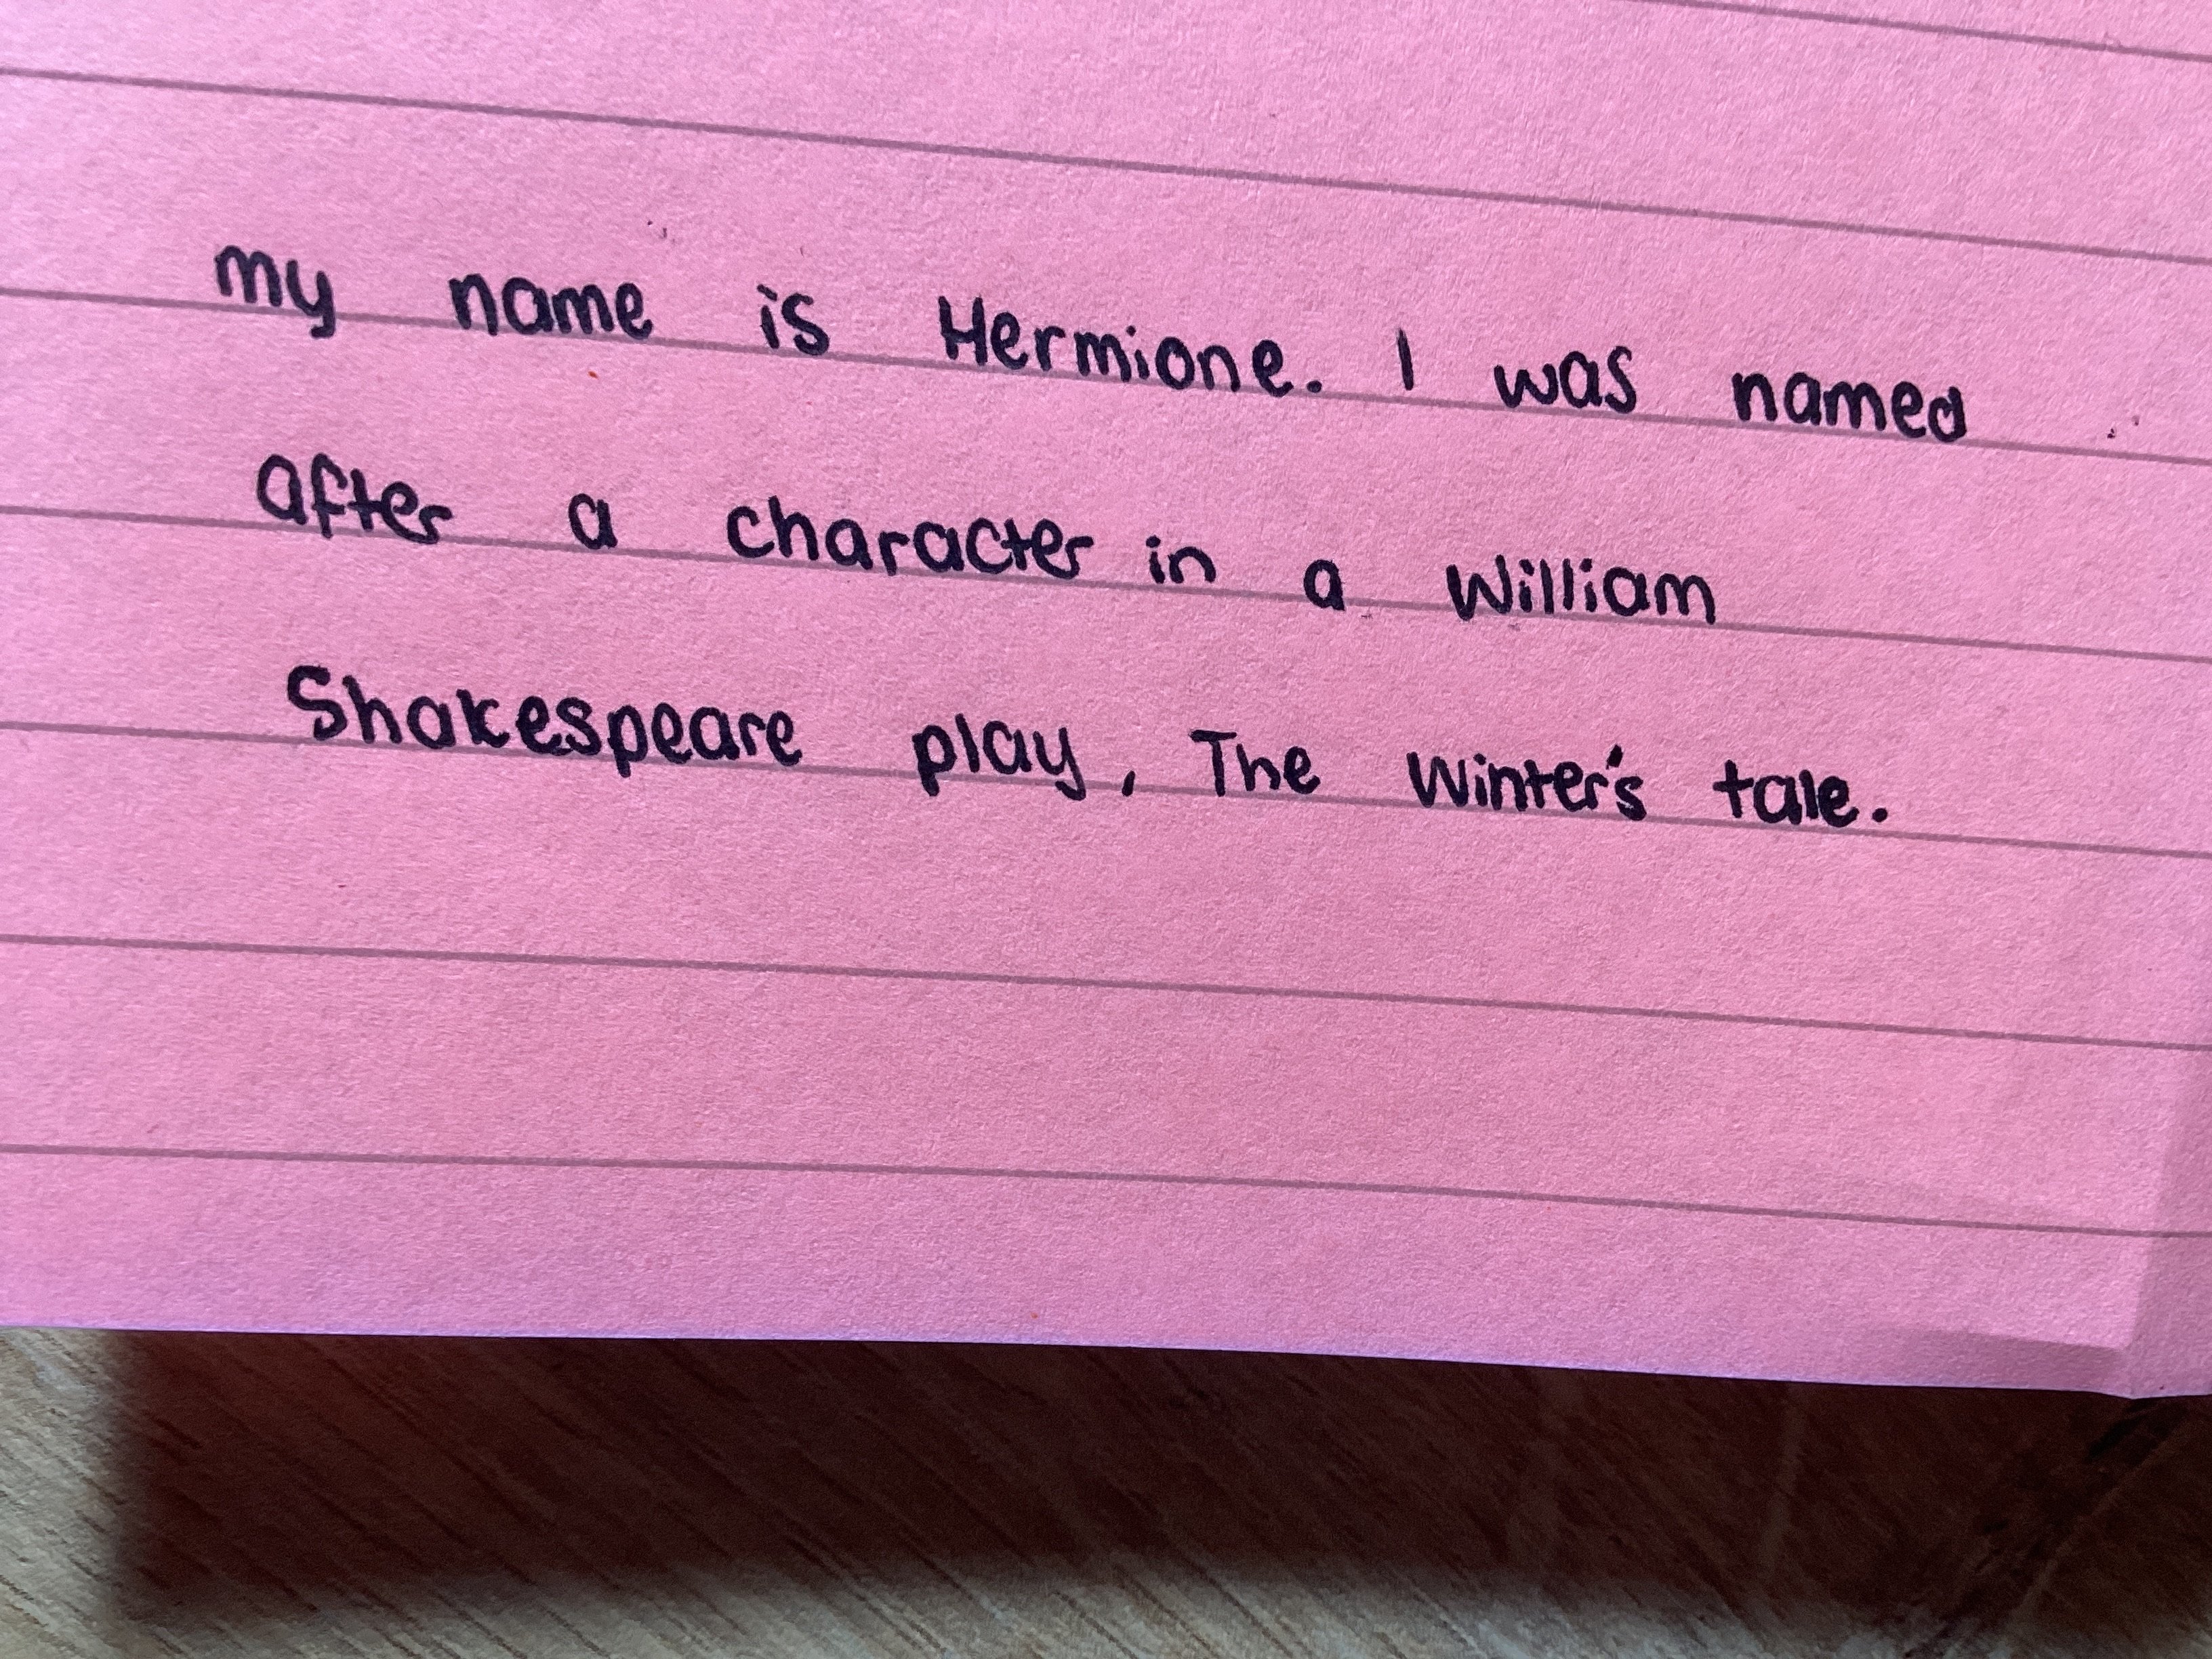 my name is Hermione. I was named
after a character in a William
Shakespeare play, The Winter's tale.